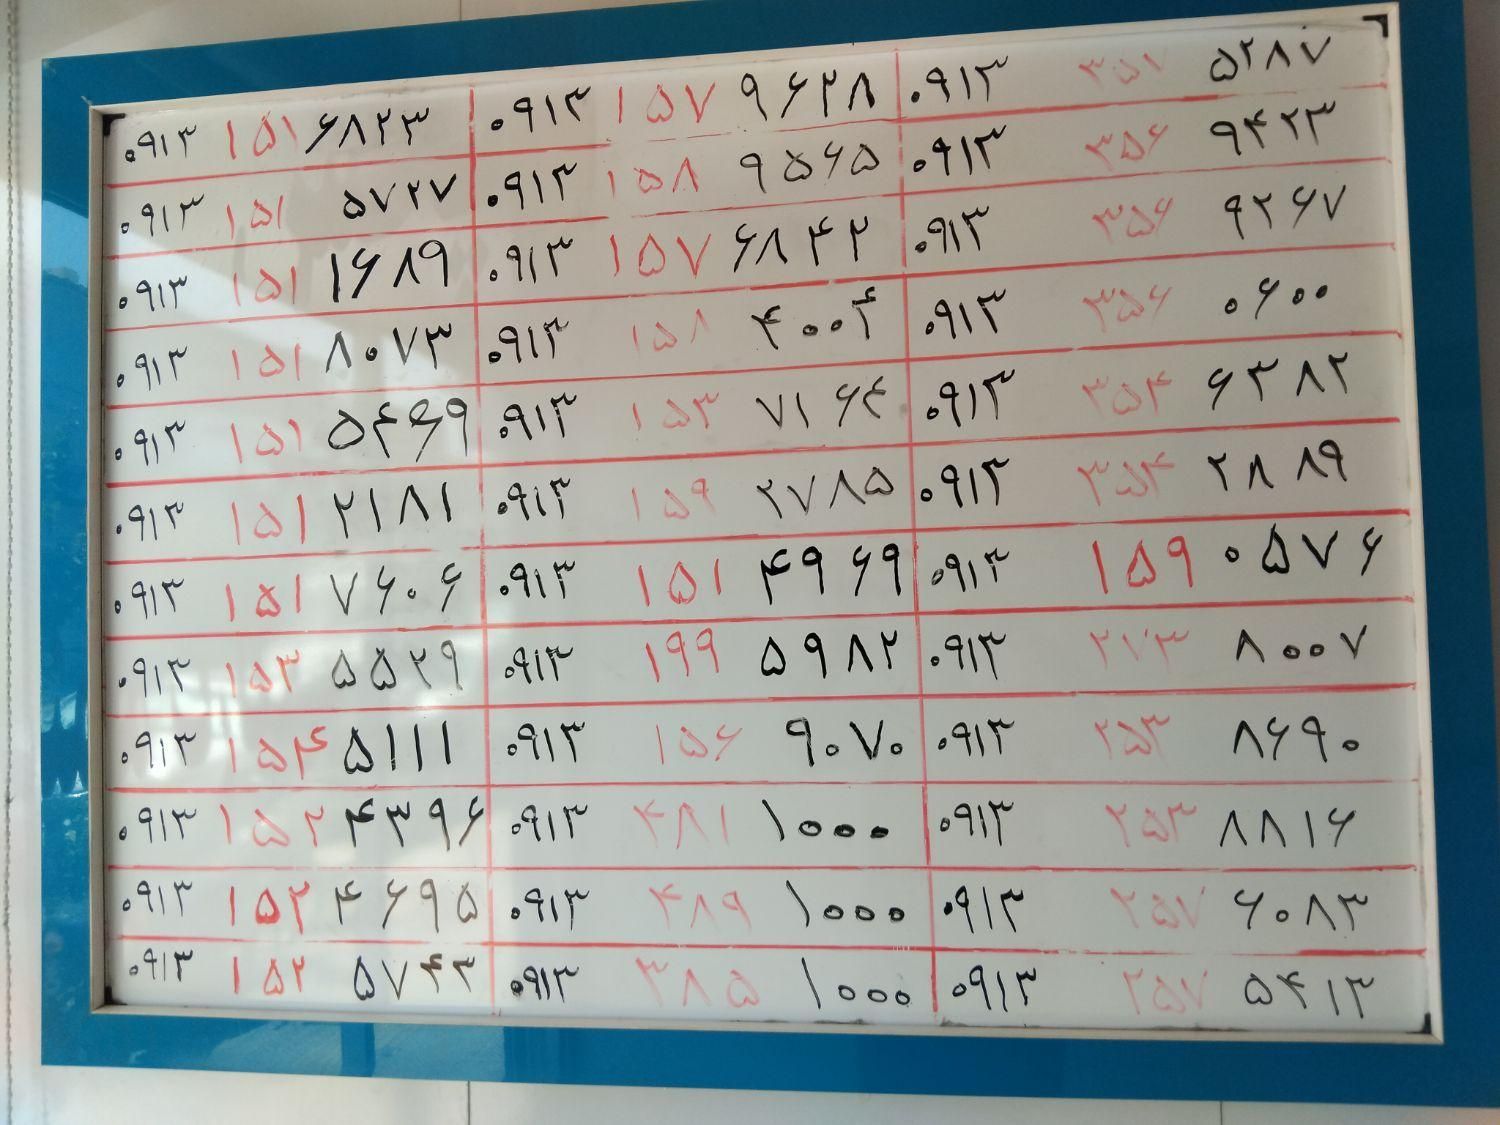 ۰۹۱۳ ۱۵۱ ۶۸۲۳
۰۹۱۳ ۱۵۱ ۵۷۲۷
۰۹۱۳ ۱۵۱ ۱۶۸۹
۰۹۱۳ ۱۵۱ ۸۰۷۳
۰۹۱۳ ۱۵۱ ۵۴۶۹
۰۹۱۳ ۱۵۱ ۲۱۸۱
۰۹۱۳ ۱۵۱ ۷۶۰۶
۰۹۱۳ ۱۵۳ ۵۵۲۹
۰۹۱۳ ۱۵۴ ۵۱۱۱
۰۹۱۳ ۱۵۲ ۴۳۹۶
۰۹۱۳ ۱۵۲ ۴۶۹۵
۰۹۱۳ ۱۵۲ ۵۷۴۳
۰۹۱۳ ۱۵۷ ۹۶۲۸
۰۹۱۳ ۱۵۸ ۹۵۶۵
۰۹۱۳ ۱۵۷ ۶۸۴۲
۰۹۱۳ ۱۵۸ ۴۰۰۴
۰۹۱۳ ۱۵۳ ۷۱۶۴
۰۹۱۳ ۱۵۹ ۲۷۸۵
۰۹۱۳ ۱۵۱ ۴۹۶۹
۰۹۱۳ ۱۹۹ ۵۹۸۲
۰۹۱۳ ۱۵۶ ۹۰۷۰
۰۹۱۳ ۴۸۱ ۱۰۰۰
۰۹۱۳ ۴۸۹ ۱۰۰۰
۰۹۱۳ ۳۸۵ ۱۰۰۰
۰۹۱۳ ۳۵۷ ۵۲۸۷
۰۹۱۳ ۳۵۶ ۹۴۲۳
۰۹۱۳ ۳۵۶ ۹۲۶۷
۰۹۱۳ ۳۵۶ ۰۶۰۰
۰۹۱۳ ۳۵۴ ۶۳۸۲
۰۹۱۳ ۳۵۴ ۲۸۸۹
۰۹۱۳ ۱۵۹ ۰۵۷۶
۰۹۱۳ ۲۷۳ ۸۰۰۷
۰۹۱۳ ۲۵۳ ۸۶۹۰
۰۹۱۳ ۲۵۳ ۸۸۱۶
۰۹۱۳ ۲۵۷ ۶۰۸۳
۰۹۱۳ ۲۵۷ ۵۴۱۳